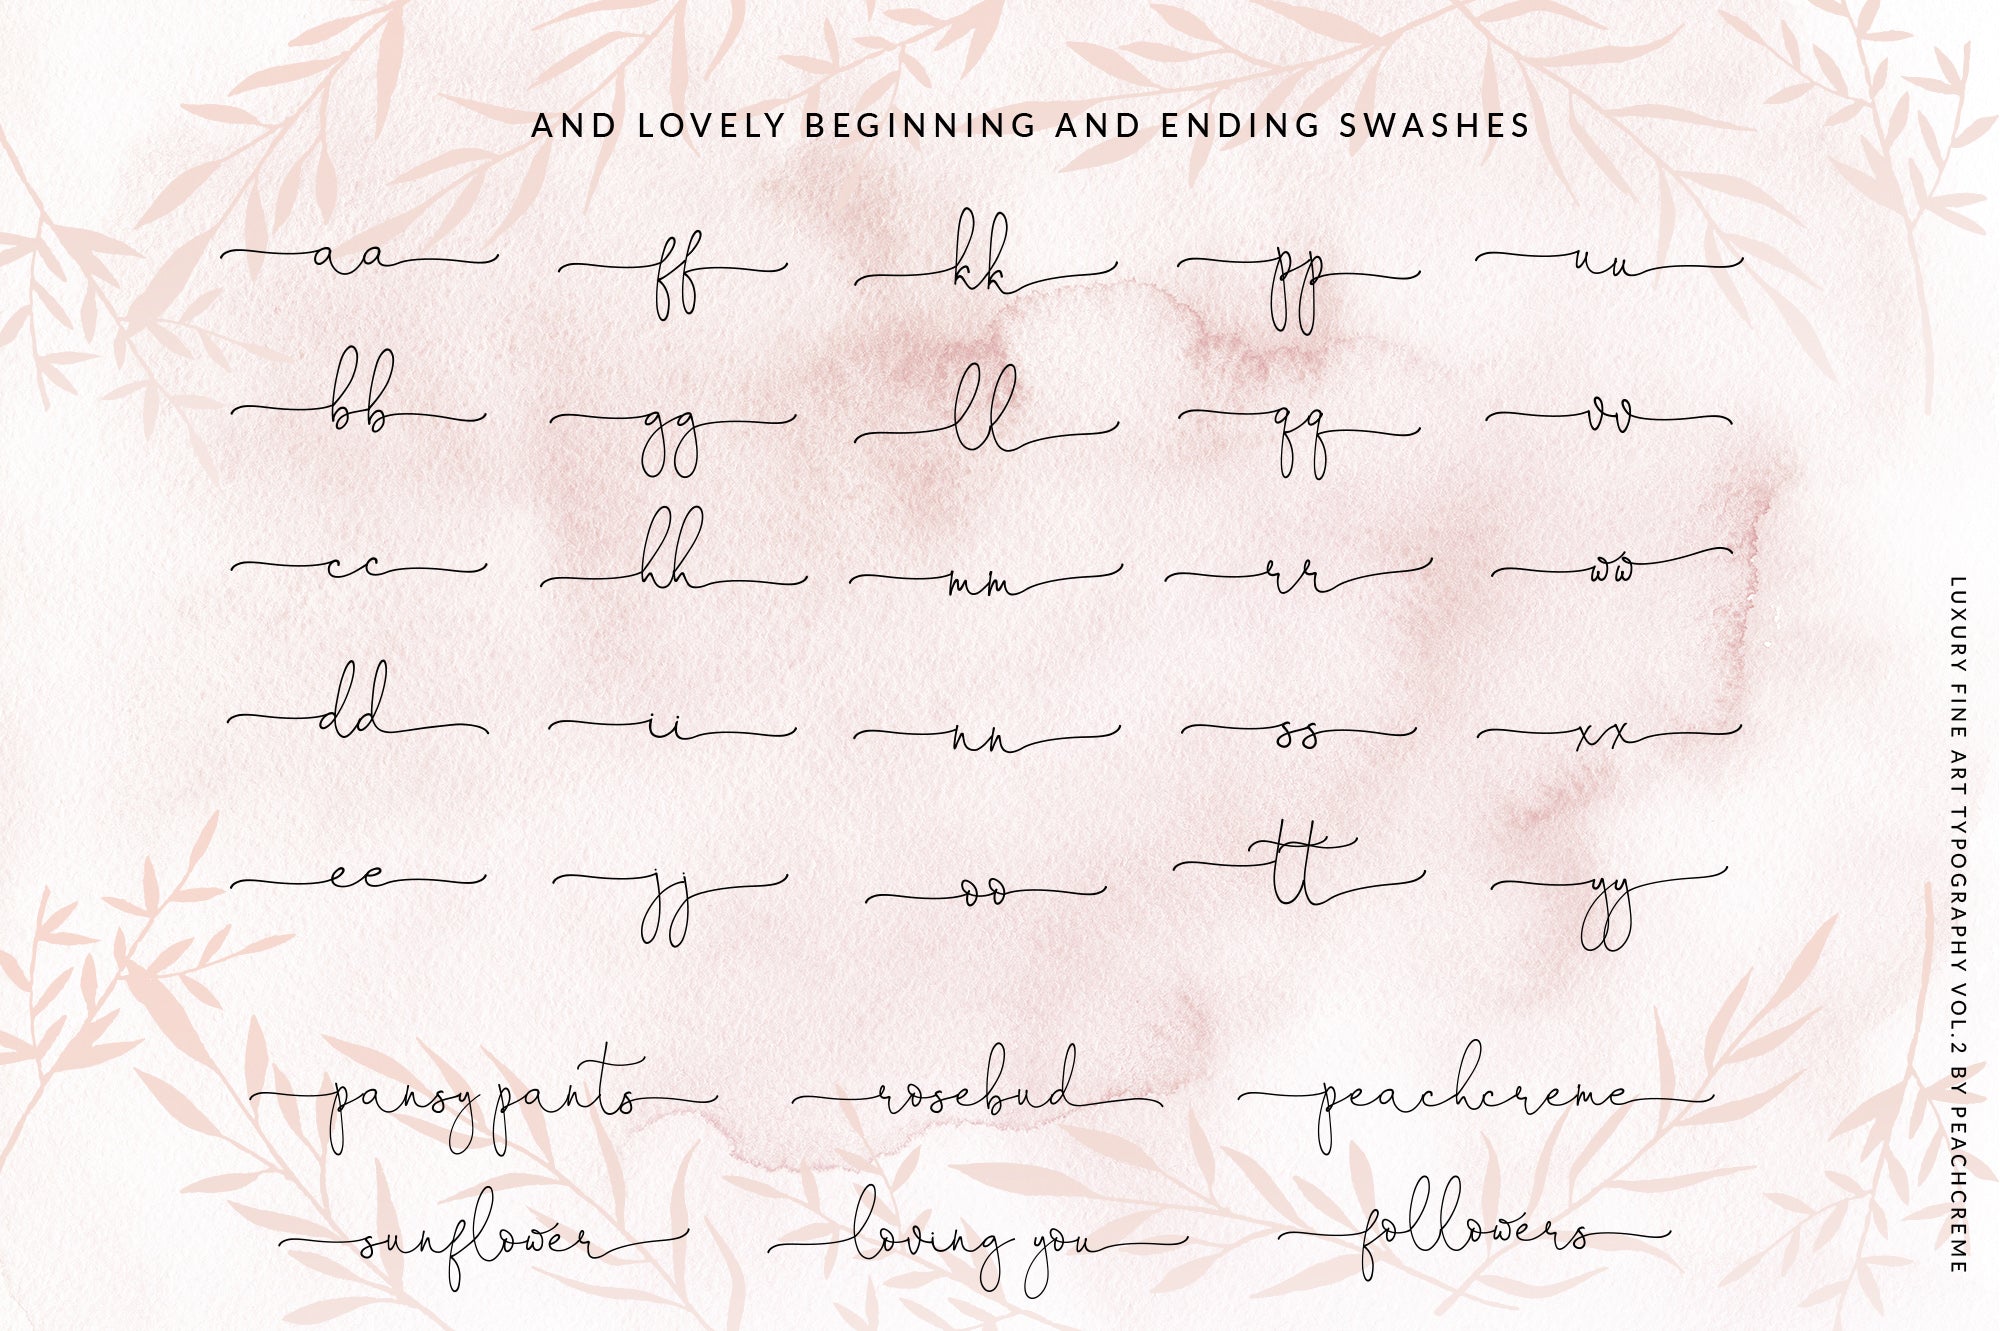 AND LOVELY BEGINNING AND ENDING SWASHES
aa ff kk pp uu
bb gg ll qq vv
cc hh mm rr ww
dd ii nn ss xx
ee jj oo tt yy
pansy pants rosebud peachcreme
sunflower loving you followers
LUXURY FINE ART TYPOGRAPHY VOL.2 BY PEACHCREME